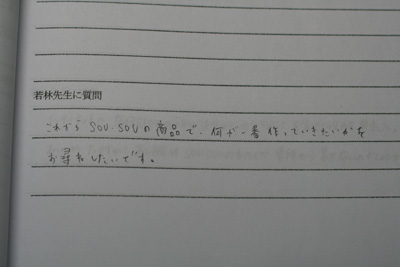 若林先生に質問
これから SOU・SOUの商品で、何が一番作っていきたいかを
お尋ねしたいです。